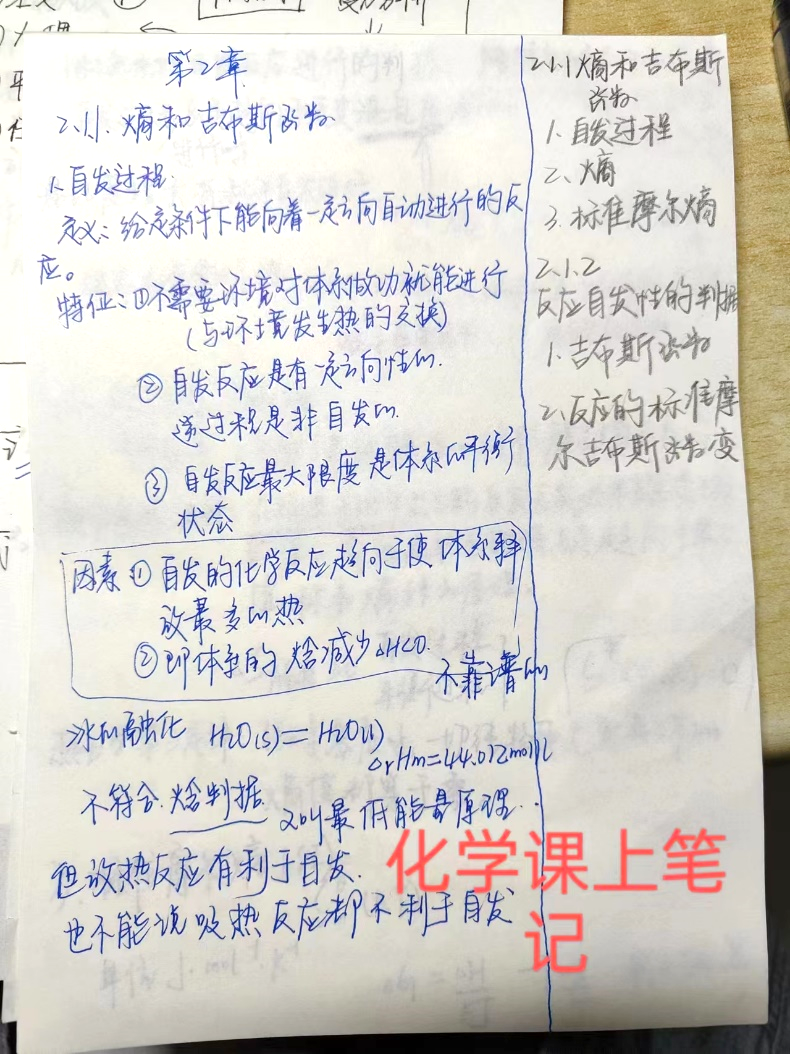 第2章
2.1.1. 熵和吉布斯函数
1.自发过程.
定义: 给定条件下能向着一定方向自动进行的反
应。
特征: ①不需要环境对体系做功就能进行
(与环境发生热的交换)
② 自发反应是有一定方向性的.
逆过程是非自发的.
③ 自发反应最大限度是体系的平衡
状态
因素 ① 自发的化学反应趋向于使体系释
放最多的热
② 即体系的焓减少 △H<0.
不靠谱的
冰的融化 H2O(s)=H2O(l)
△rHm=44.012mol/L
不符合.焓判据
又叫最低能量原理..
但放热反应有利于自发.
也不能说吸热反应都不利于自发
2.1.1熵和吉布斯
函数
1.自发过程
2、熵
3.标准摩尔熵
2.1.2
反应自发性的判据
1.吉布斯函数
2.反应的标准摩
尔吉布斯函数变
化学课上笔
记